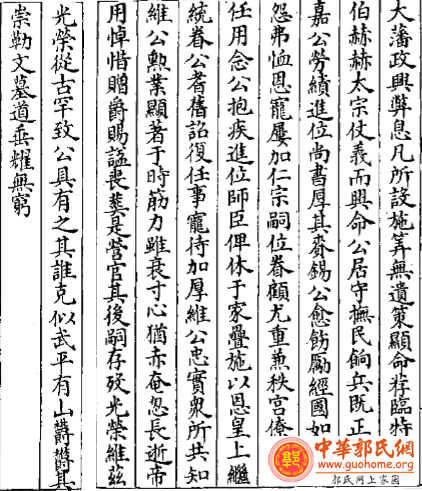 大藩政興弊息凡所設施筭無遺策顯命荐臨特
伯赫赫太宗仗義而興命公居守撫民餉兵既正
嘉公勞績進位尚書厚其賚錫公愈飭勵經國如
怨弗恤恩寵屢加仁宗嗣位眷顧尤重兼秩宮僚
任用念公抱疾進位師臣俾休于家疊施以恩皇上繼
統眷公者舊詔復任事寵待加厚維公忠實衆所共知
維公勲業顯著于時筋力雖衰寸心猶赤奄忽長逝帝
用悼惜贈爵賜謚喪葬是營官其後嗣存歿光榮維茲
光榮從古罕致公具有之其誰克似武平有山欝欝其
崇勒文墓道垂耀無窮
中華郭氏網
www.guohome.org
郭氏网上家園